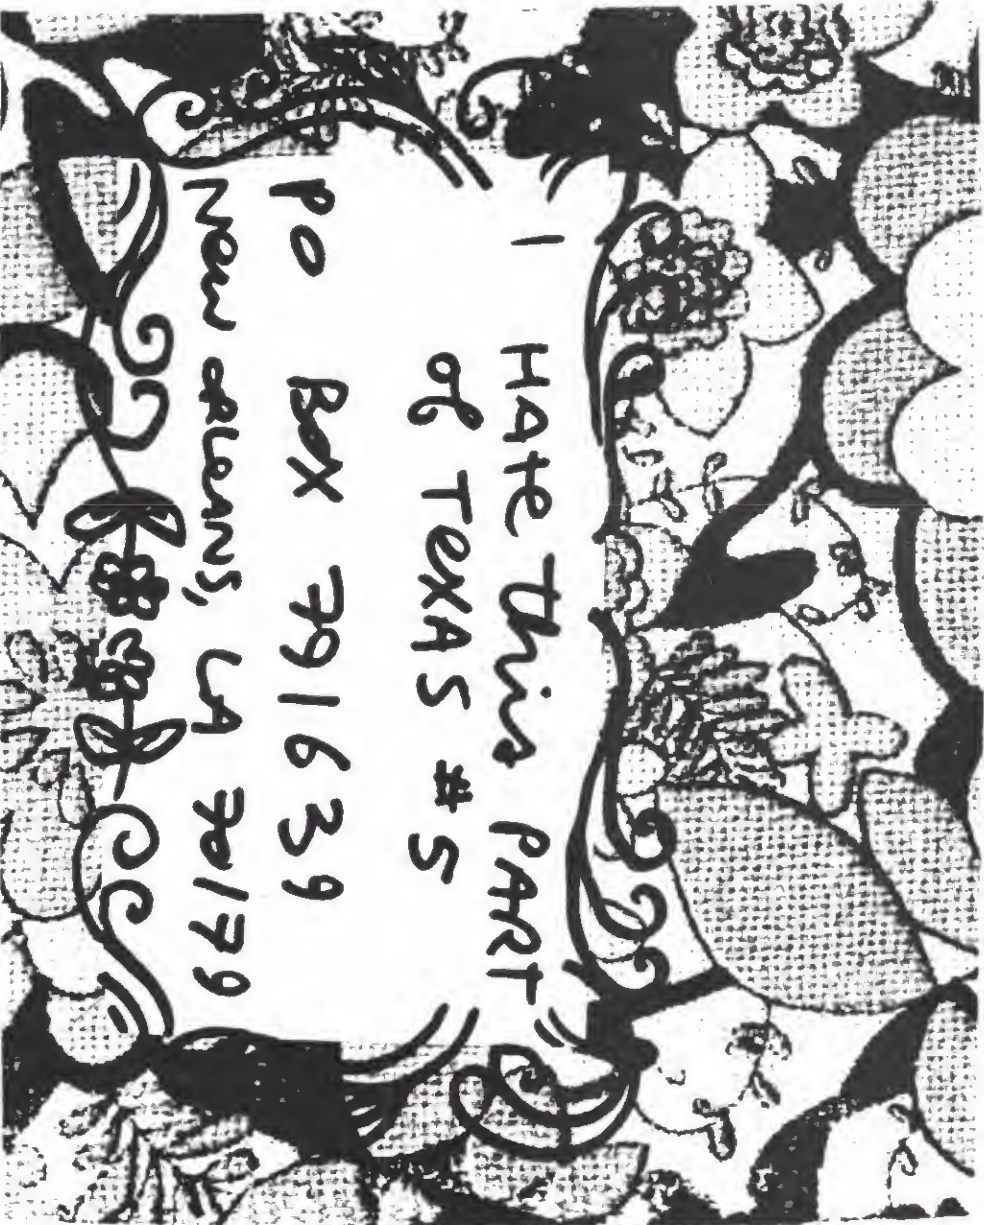 I HATE this PART
of TEXAS #5
PO BOX 791639
New ORLEANS, LA 70179